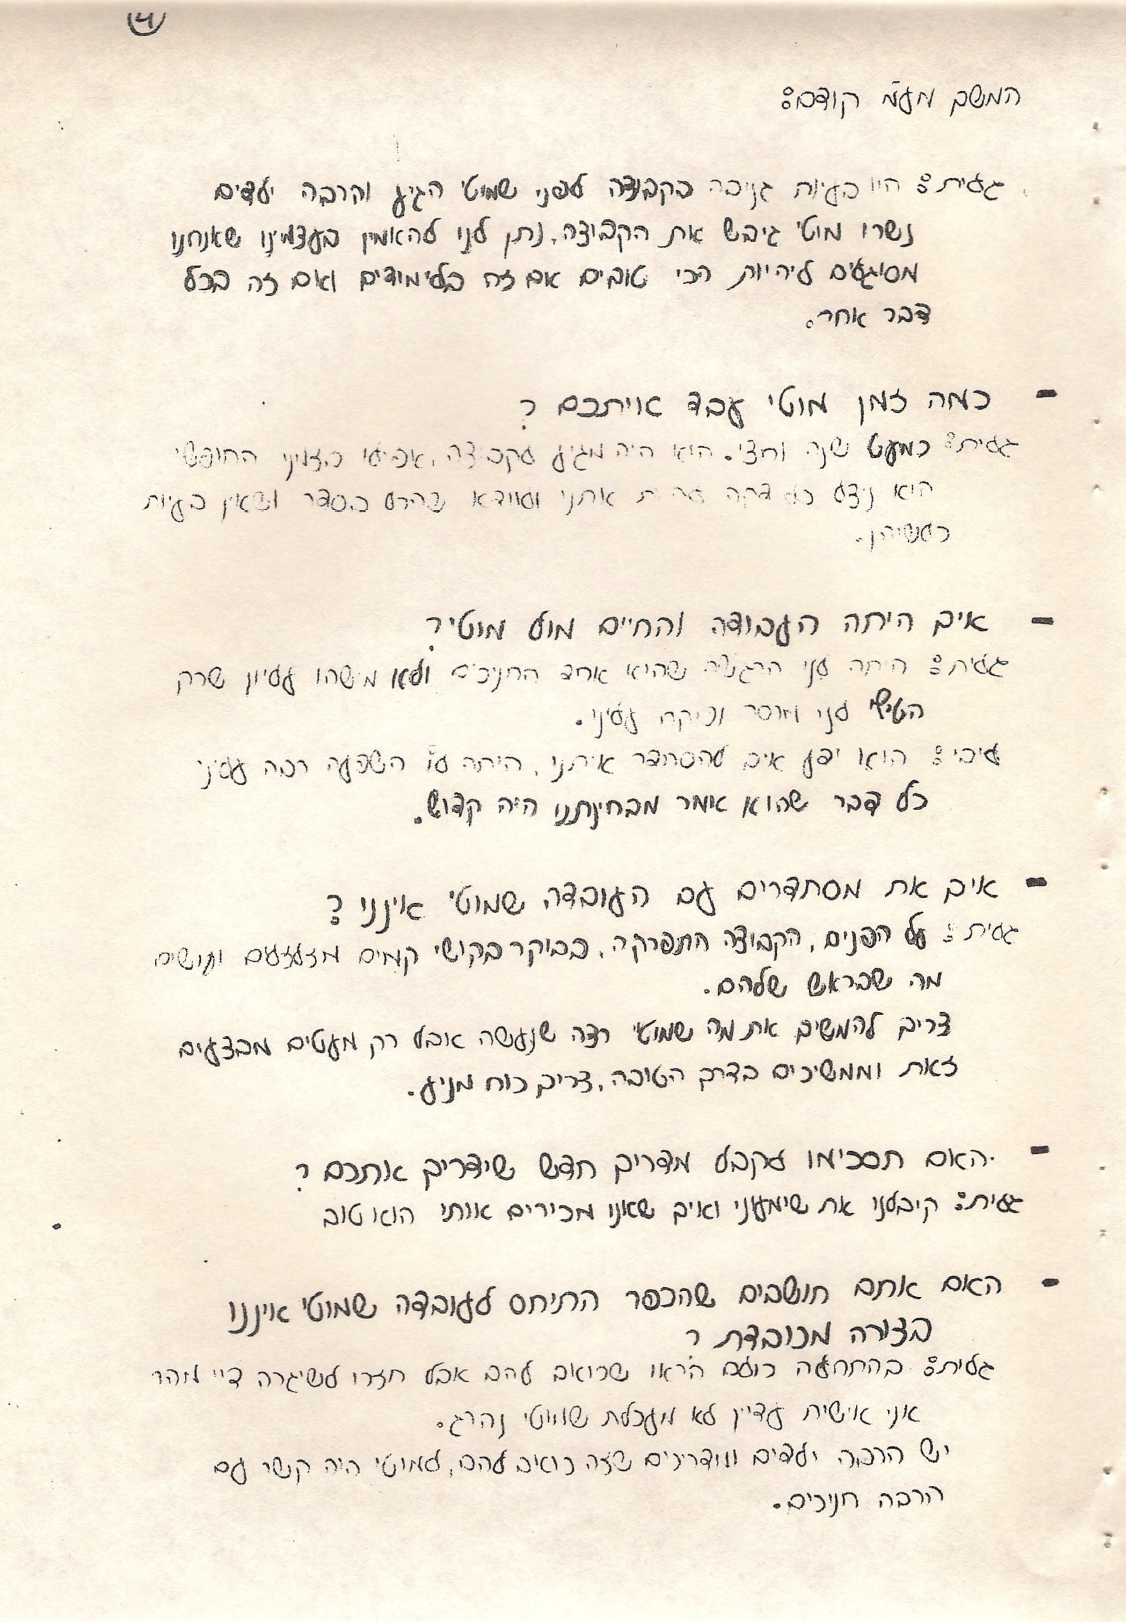 4
המשך מעמ' קודם:
גלית: היו בעיות גניבה בקבוצה לפני שמוטי הגיע והרבה ילדים
נשרו מוטי גיבש את הקבוצה, נתן לנו להאמין בעצמינו שאנחנו
מסוגלים ליהיות הכי טובים אם זה בלימודים ואם זה בכל
דבר אחר.
- כמה זמן מוטי עבד איתכם ?
גלית: כמעט שנה וחצי. הוא היה מגיע לקבוצה, אפילו בזמנו החופשי
הוא ניצל כל דקה להיות אתנו ולוודא שהכל בסדר ושאין בעיות
כלשיהן.
- איך היתה העבודה והחיים מול מוטי ?
גלית: היתה לנו הרגשה שהוא אחד החניכים ולא מישהו עליון שרק
הטיף לנו מוסר ופיקח עלינו.
ליבי: הוא ידע איך להסתדר איתנו, היתה לו השפעה רבה עלינו
כל דבר שהוא אימר מבחינתנו היה קדוש.
- איך את מסתדרים עם העובדה שמוטי איננו ?
גלית: על הפנים, הקבוצה התפרקה, בבוקר בקושי קמים מזלזלים ועושים
מה שבראש שלהם.
צריך להמשיך את מה שמוטי רצה שנעשה אבל רק מעטים מבצעים
זאת וממשיכים בדרך הטובה, צריך כוח מניע.
- האם תסכימו לקבל מדריך חדש שידריך אתכם ?
גלית: קיבלנו את שימעוני ואיך שאנו מכירים אותו הוא טוב
- האם אתם חושבים שהכפר התיחס לעובדה שמוטי איננו
בצורה מכובדת ?
גלית: בהתחלה כולם הראו שכואב להם אבל חזרו לשיגרה דיי מהר
אני אישית עדיין לא מעכלת שמוטי נהרג.
יש הרבה ילדים ומדריכים שזה כואב להם, למוטי היה קשר עם
הרבה חניכים.